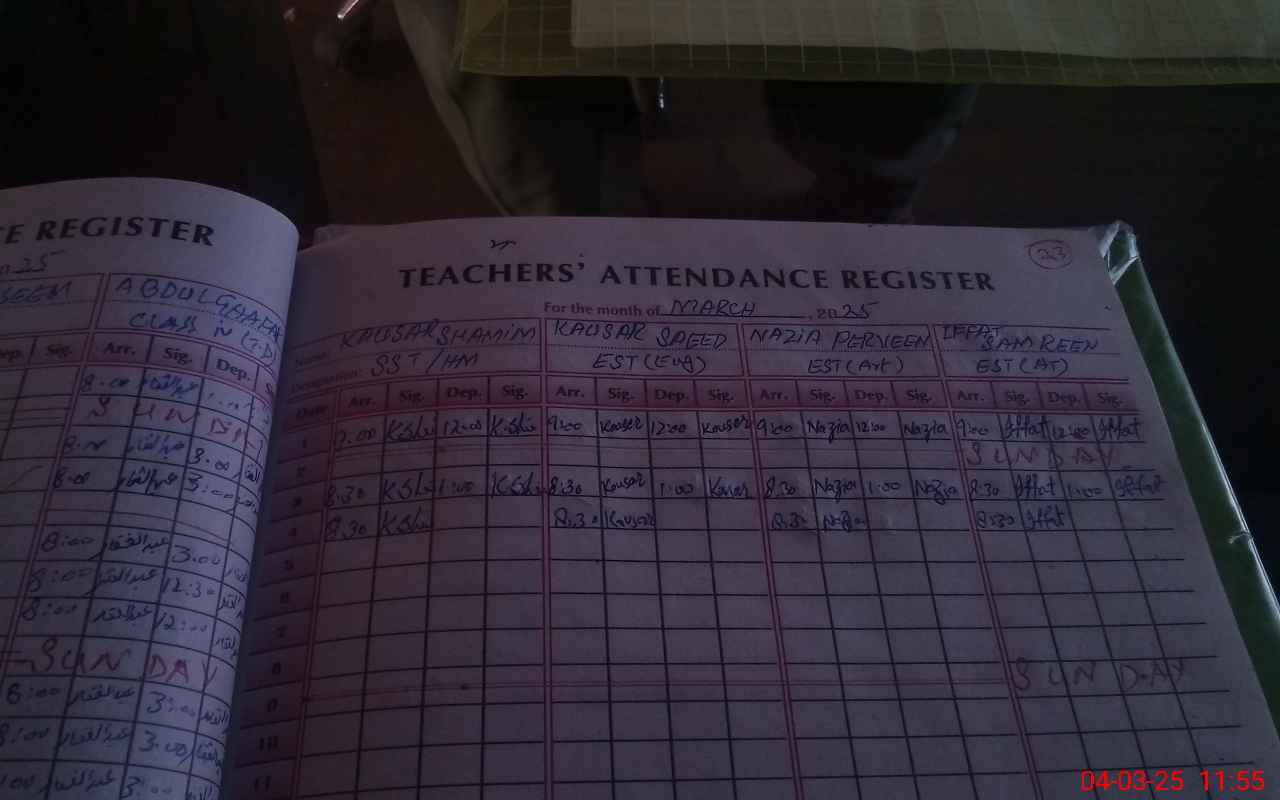 E REGISTER
25
SEEM
ABDUL GHAFAR
CLASS iv (T.D)
Dep. Sig. Arr. Sig. Dep.
8:00 عبدالغفار
S U N D A Y
8:00 عبدالغفار 3:00
8:00 عبدالغفار 3:00
8:00 عبدالغفار 3:00
8:00 عبدالغفار 12:30
8:00 عبدالغفار 12:00
SUN DAY
8:00 عبدالغفار 3:00
8:00 عبدالغفار 3:00
:00 عبدالغفار 3:00
23
TEACHERS' ATTENDANCE REGISTER
For the month of MARCH, 2025
Name: KAUSAR SHAMIM KAUSAR SAEED NAZIA PERVEEN IFFAT SAMREEN
Designation: SST/HM EST(Eng) EST(Art) EST(AT)
Date Arr. Sig. Dep. Sig. Arr. Sig. Dep. Sig. Arr. Sig. Dep. Sig. Arr. Sig. Dep. Sig.
1 9:00 12:00 9:00 Kausar 12:00 Kausar 9:00 Nazia 12:00 Nazia 9:00 Iffat 12:00 Iffat
2 S U N D A Y
3 8:30 1:00 8:30 Kausar 1:00 Kausar 8:30 Nazia 1:00 Nazia 8:30 Iffat 1:00 Iffat
4 8:30 8:30 Kausar 8:30 Nazia 8:30 Iffat
5
6
7
8 S U N D A Y
9
10
11
04-03-25 11:55